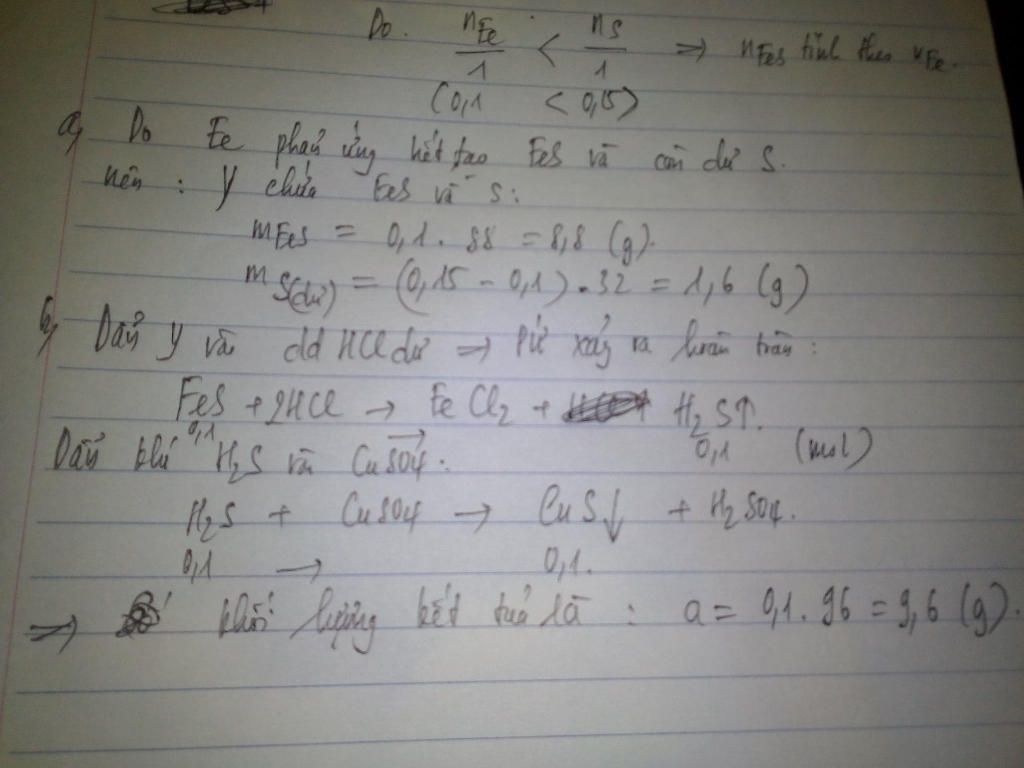 Do. nFe/1 < nS/1 => nFeS tính theo nFe.
(0,1 < 0,15)
a, Do Fe phản ứng hết tạo FeS và còn dư S.
nên : Y chứa FeS và S:
mFeS = 0,1 . 88 = 8,8 (g).
mS(dư) = (0,15 - 0,1) . 32 = 1,6 (g)
b, Dẫn Y vào dd HCl dư => PƯ xảy ra hoàn toàn :
FeS + 2HCl → FeCl2 + H2S↑.
0,1 → 0,1 (mol)
Dẫn khí H2S vào CuSO4 :
H2S + CuSO4 → CuS↓ + H2SO4.
0,1 → 0,1.
=> khối lượng kết tủa là : a = 0,1 . 96 = 9,6 (g).